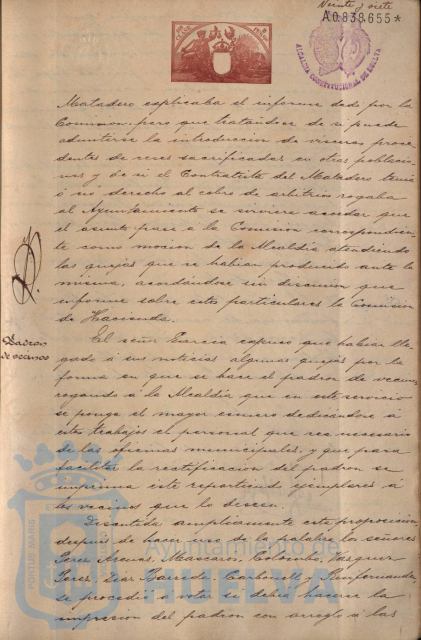 Veinte y siete
A0.838.655*
ALCALDIA CONSTITUCIONAL DE HUELVA
Matadero esplicaba el informe dado por la
Comision, pero que tratandose de si puede
admitirse la introduccion de visceras proce
dentes de reses sacrificadas en otras poblacio
nes y ó si el Contratista del Matadero tenia
ó no derecho al cobro de arbitrios rogaba
al Ayuntamiento se sirviera acordar que
el asunto pase á la Comision correspondien
te como mocion de la Alcaldia atendiendo
las quejas que se habian producido ante la
misma, acordándose sin discusion que
informe sobre estos particulares la Comision
de Hacienda.
Padron
de vecinos
El señor Garcia espresó que habian lle
gado á sus noticias algunas quejas por la
forma en que se hace el padron de vecinos
rogando á la Alcaldia que en este servicio
se ponga el mayor esmero dedicándose á
estos trabajos el personal que sea necesario
de las oficinas municipales, y que para
facilitar la rectificacion del padron se
imprima este repartiendo ejemplares á
los vecinos que lo deseen.
Discutida ampliamente esta proposicion
despues de hacer uso de la palabra los señores
Perez Arenas, Mascaros, Colombo, Vazquez
Perez, Barreda, Carbonell y
se procedió á votar si debia hacerse la
impresion del padron con arreglo á las
PORTUS MARIS
Ayuntamiento de
HUELVA